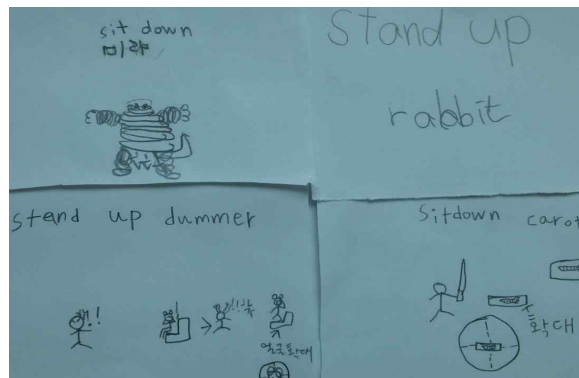 sit down
미라
stand up
rabbit
stand up dummer
!!
얼굴확대
sitdown carot
확대